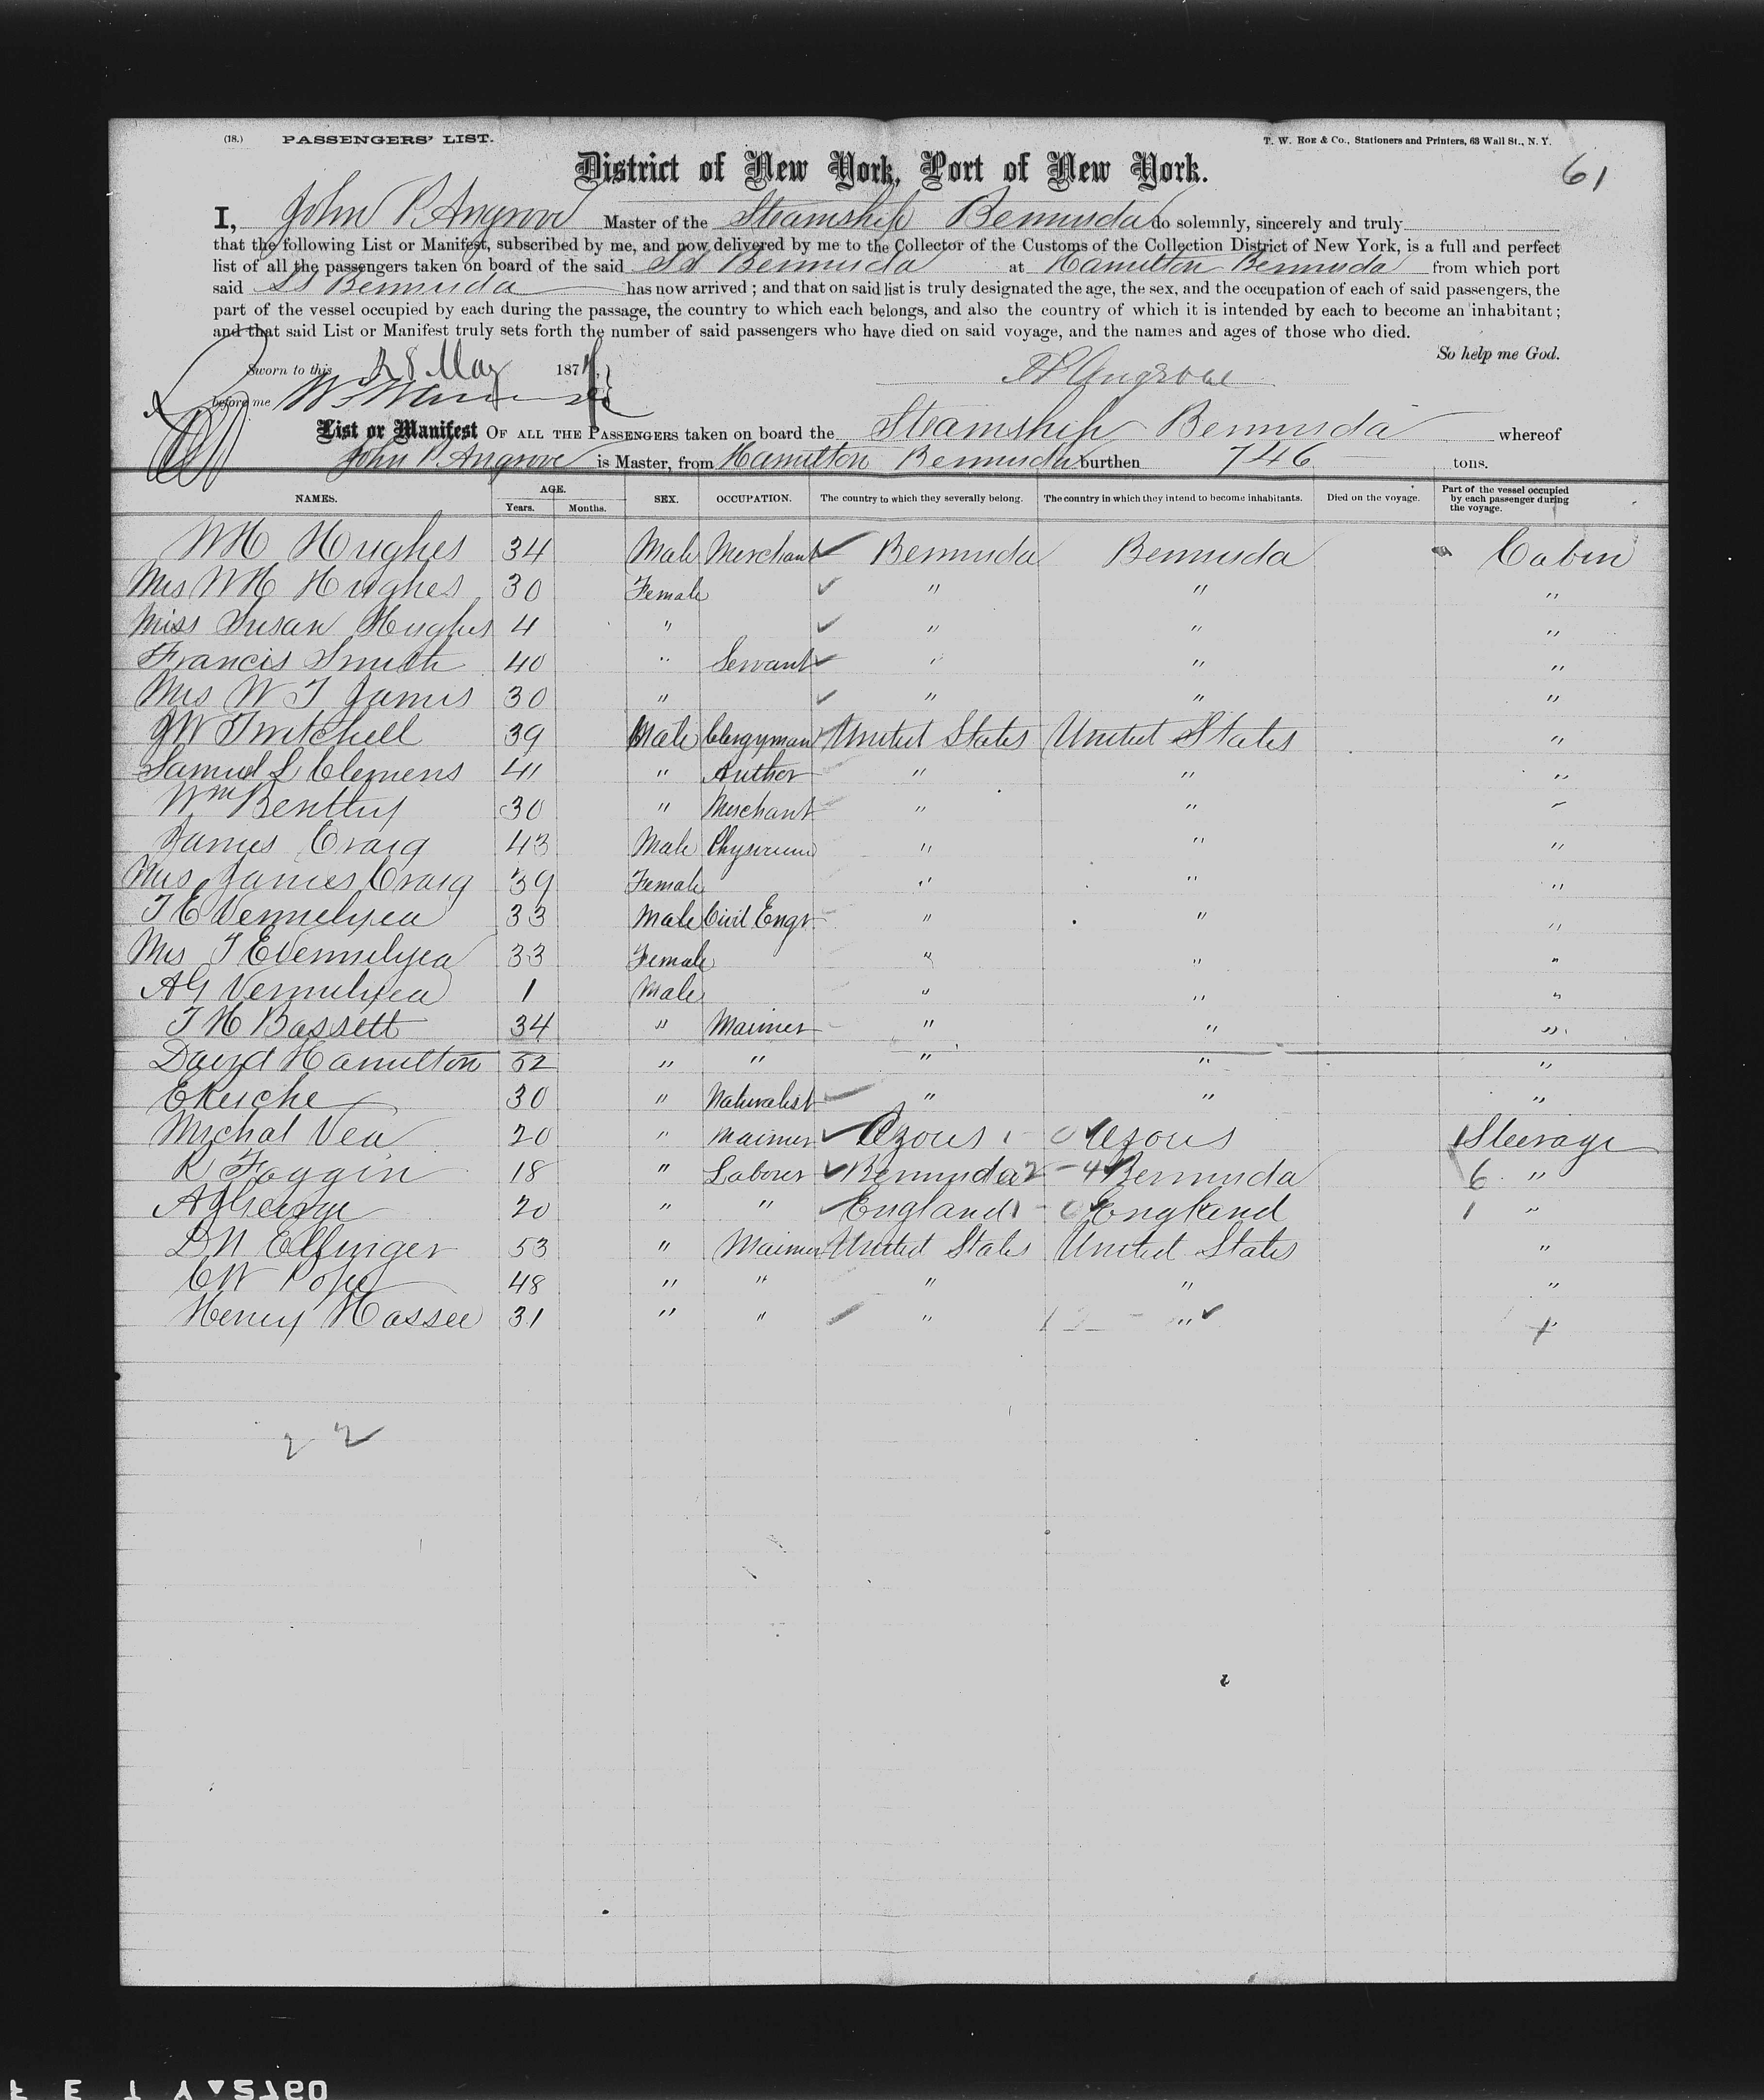 (18.) PASSENGERS' LIST. T. W. Roe & Co., Stationers and Printers, 63 Wall St., N. Y.
District of New York, Port of New York. 61
I, John P. Angrove Master of the Steamship Bermuda do solemnly, sincerely and truly
that the following List or Manifest, subscribed by me, and now delivered by me to the Collector of the Customs of the Collection District of New York, is a full and perfect
list of all the passengers taken on board of the said SS Bermuda at Hamilton Bermuda from which port
said SS Bermuda has now arrived; and that on said list is truly designated the age, the sex, and the occupation of each of said passengers, the
part of the vessel occupied by each during the passage, the country to which each belongs, and also the country of which it is intended by each to become an inhabitant;
and that said List or Manifest truly sets forth the number of said passengers who have died on said voyage, and the names and ages of those who died.
So help me God.
Sworn to this 28 May 187 JP Angrove
before me
List or Manifest OF ALL THE PASSENGERS taken on board the Steamship Bermuda whereof
John P. Angrove is Master, from Hamilton Bermuda burthen 746 tons.
NAMES. AGE. Years. Months. SEX. OCCUPATION. The country to which they severally belong. The country in which they intend to become inhabitants. Died on the voyage. Part of the vessel occupied by each passenger during the voyage.
WH Hughes 34 Male Merchant Bermuda Bermuda Cabin
Mrs WH Hughes 30 Female " " "
Miss Susan Hughes 4 " " " "
Francis Smith 40 " Servant " " "
Mrs W T James 30 " " " "
JW Twitchell 39 Male Clergyman United States United States "
Samuel L Clemens 41 " Author " " "
Wm Bentley 30 " Merchant " " "
James Craig 43 Male Physician " " "
Mrs James Craig 39 Female " " "
T E Vermelyea 33 Male Civil Engr " " "
Mrs T E Vermelyea 33 Female " " "
AG Vermelyea 1 Male " " "
T H Bassett 34 " Mariner " " "
David Hamilton 52 " " " " "
30 " Naturalist " " "
Michal Vea 20 " Mariner Azores 1 - 0 Azores 1 Steerage
R Foggin 18 " Laborer Bermuda 2 - 4 Bermuda 6 "
20 " " England 1 - 0 England 1 "
D N Elfinger 53 " Mariner United States United States "
CW Pope 48 " " " " "
Henry Hassee 31 " " " " "
22